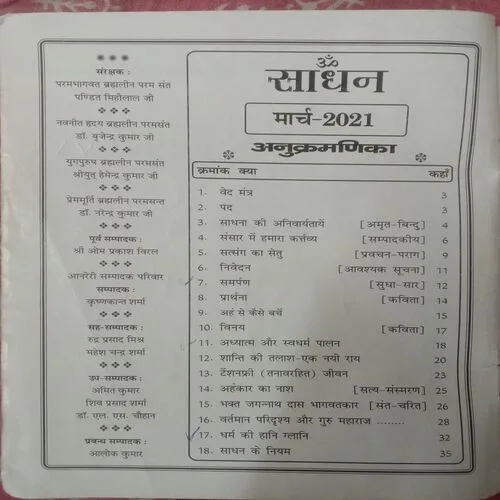 संरक्षक :
परमभागवत ब्रह्मलीन परम संत
पण्डित मिहीलाल जी
नवनीत हृदय ब्रह्मलीन परमसंत
डॉ. बृजेन्द्र कुमार जी
युगपुरुष ब्रह्मलीन परमसंत
श्रीयुत् हेमेन्द्र कुमार जी
प्रेममूर्ति ब्रह्मलीन परमसन्त
डॉ. नरेन्द्र कुमार जी
पूर्व सम्पादक :
श्री ओम प्रकाश विरल
आनरेरी सम्पादक परिवार
सम्पादक :
कृष्णकान्त शर्मा
सह-सम्पादक :
रुद्र प्रसाद मिश्र
महेश चन्द्र शर्मा
उप-सम्पादक :
अमित कुमार
शिव प्रसाद शर्मा
डॉ. एल. एस. चौहान
प्रबन्ध सम्पादक :
आलोक कुमार
ॐ
साधन
मार्च-2021
अनुक्रमणिका
क्रमांक क्या कहाँ
1. वेद मंत्र 3
2. पद 3
3. साधना की अनिवार्यतायें [अमृत-बिन्दु] 4
4. संसार में हमारा कर्त्तव्य [सम्पादकीय] 6
5. सत्संग का सेतु [प्रवचन-पराग] 9
6. निवेदन [आवश्यक सूचना] 11
7. समर्पण [सुधा-सार] 12
8. प्रार्थना [कविता] 14
9. अहं से कैसे बचें 15
10. विनय [कविता] 17
11. अध्यात्म और स्वधर्म पालन 18
12. शान्ति की तलाश-एक नयी राय 20
13. टेंशनफ्री (तनावरहित) जीवन 23
14. अहंकार का नाश [सत्य-संस्मरण] 25
15. भक्त जगन्नाथ दास भागवतकार [संत-चरित] 26
16. वर्तमान परिदृश्य और गुरु महाराज ........ 28
17. धर्म की हानि ग्लानि 32
18. साधन के नियम 35